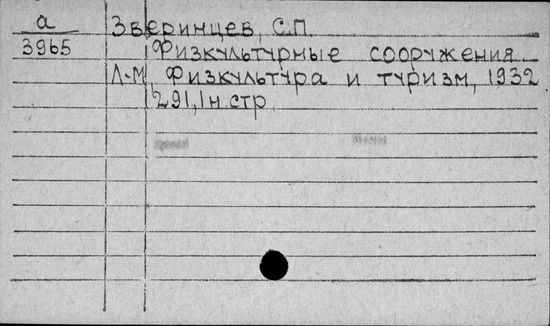 а Зверинцев, С.П.
3965 Физкультурные сооружения
Л-М, Физкультура и туризм, 1932
291, 1 н. стр